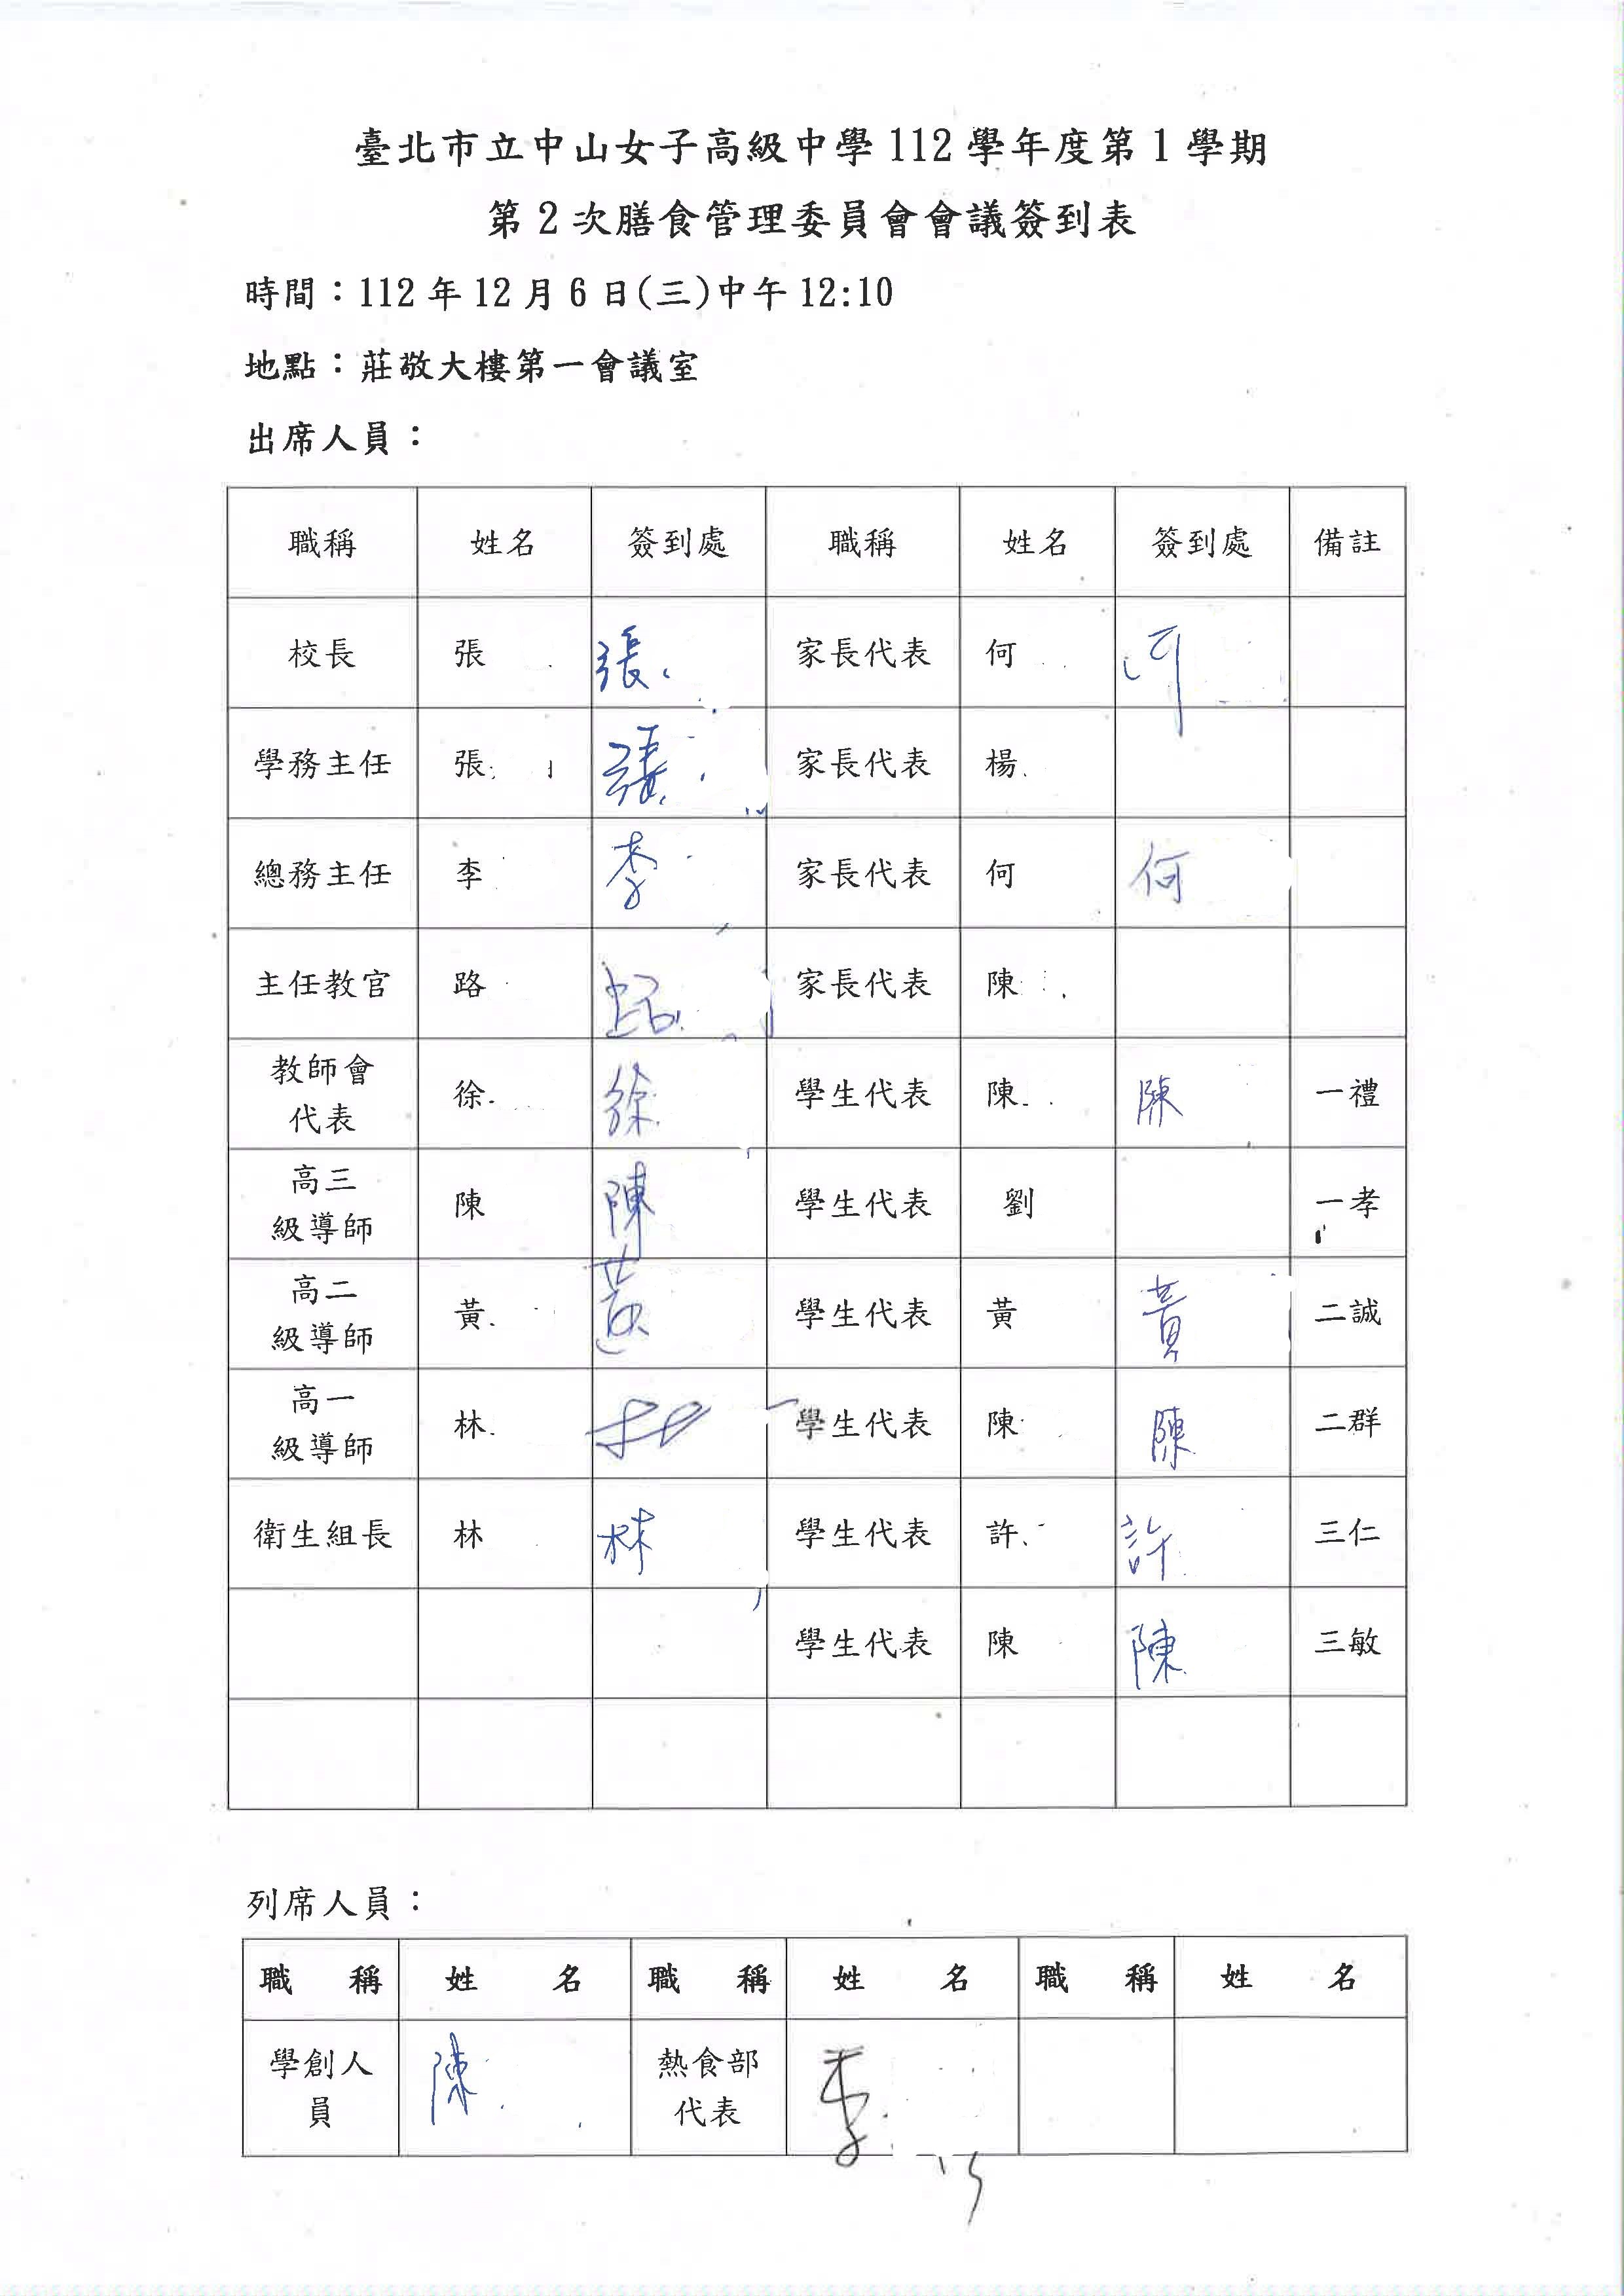 臺北市立中山女子高級中學112學年度第1學期
第2次膳食管理委員會會議簽到表
時間：112年12月6日(三)中午12:10
地點：莊敬大樓第一會議室
出席人員：
職稱 姓名 簽到處 職稱 姓名 簽到處 備註
校長 張 張 家長代表 何 何
學務主任 張 張 家長代表 楊
總務主任 李 李 家長代表 何 何
主任教官 路 路 家長代表 陳
教師會
代表 徐 徐 學生代表 陳 陳 一禮
高三
級導師 陳 陳 學生代表 劉 一孝
高二
級導師 黃 黃 學生代表 黃 黃 二誠
高一
級導師 林 林 學生代表 陳 陳 二群
衛生組長 林 林 學生代表 許 許 三仁
學生代表 陳 陳 三敏
列席人員：
職稱 姓名 職稱 姓名 職稱 姓名
學創人
員 陳 熱食部
代表 李